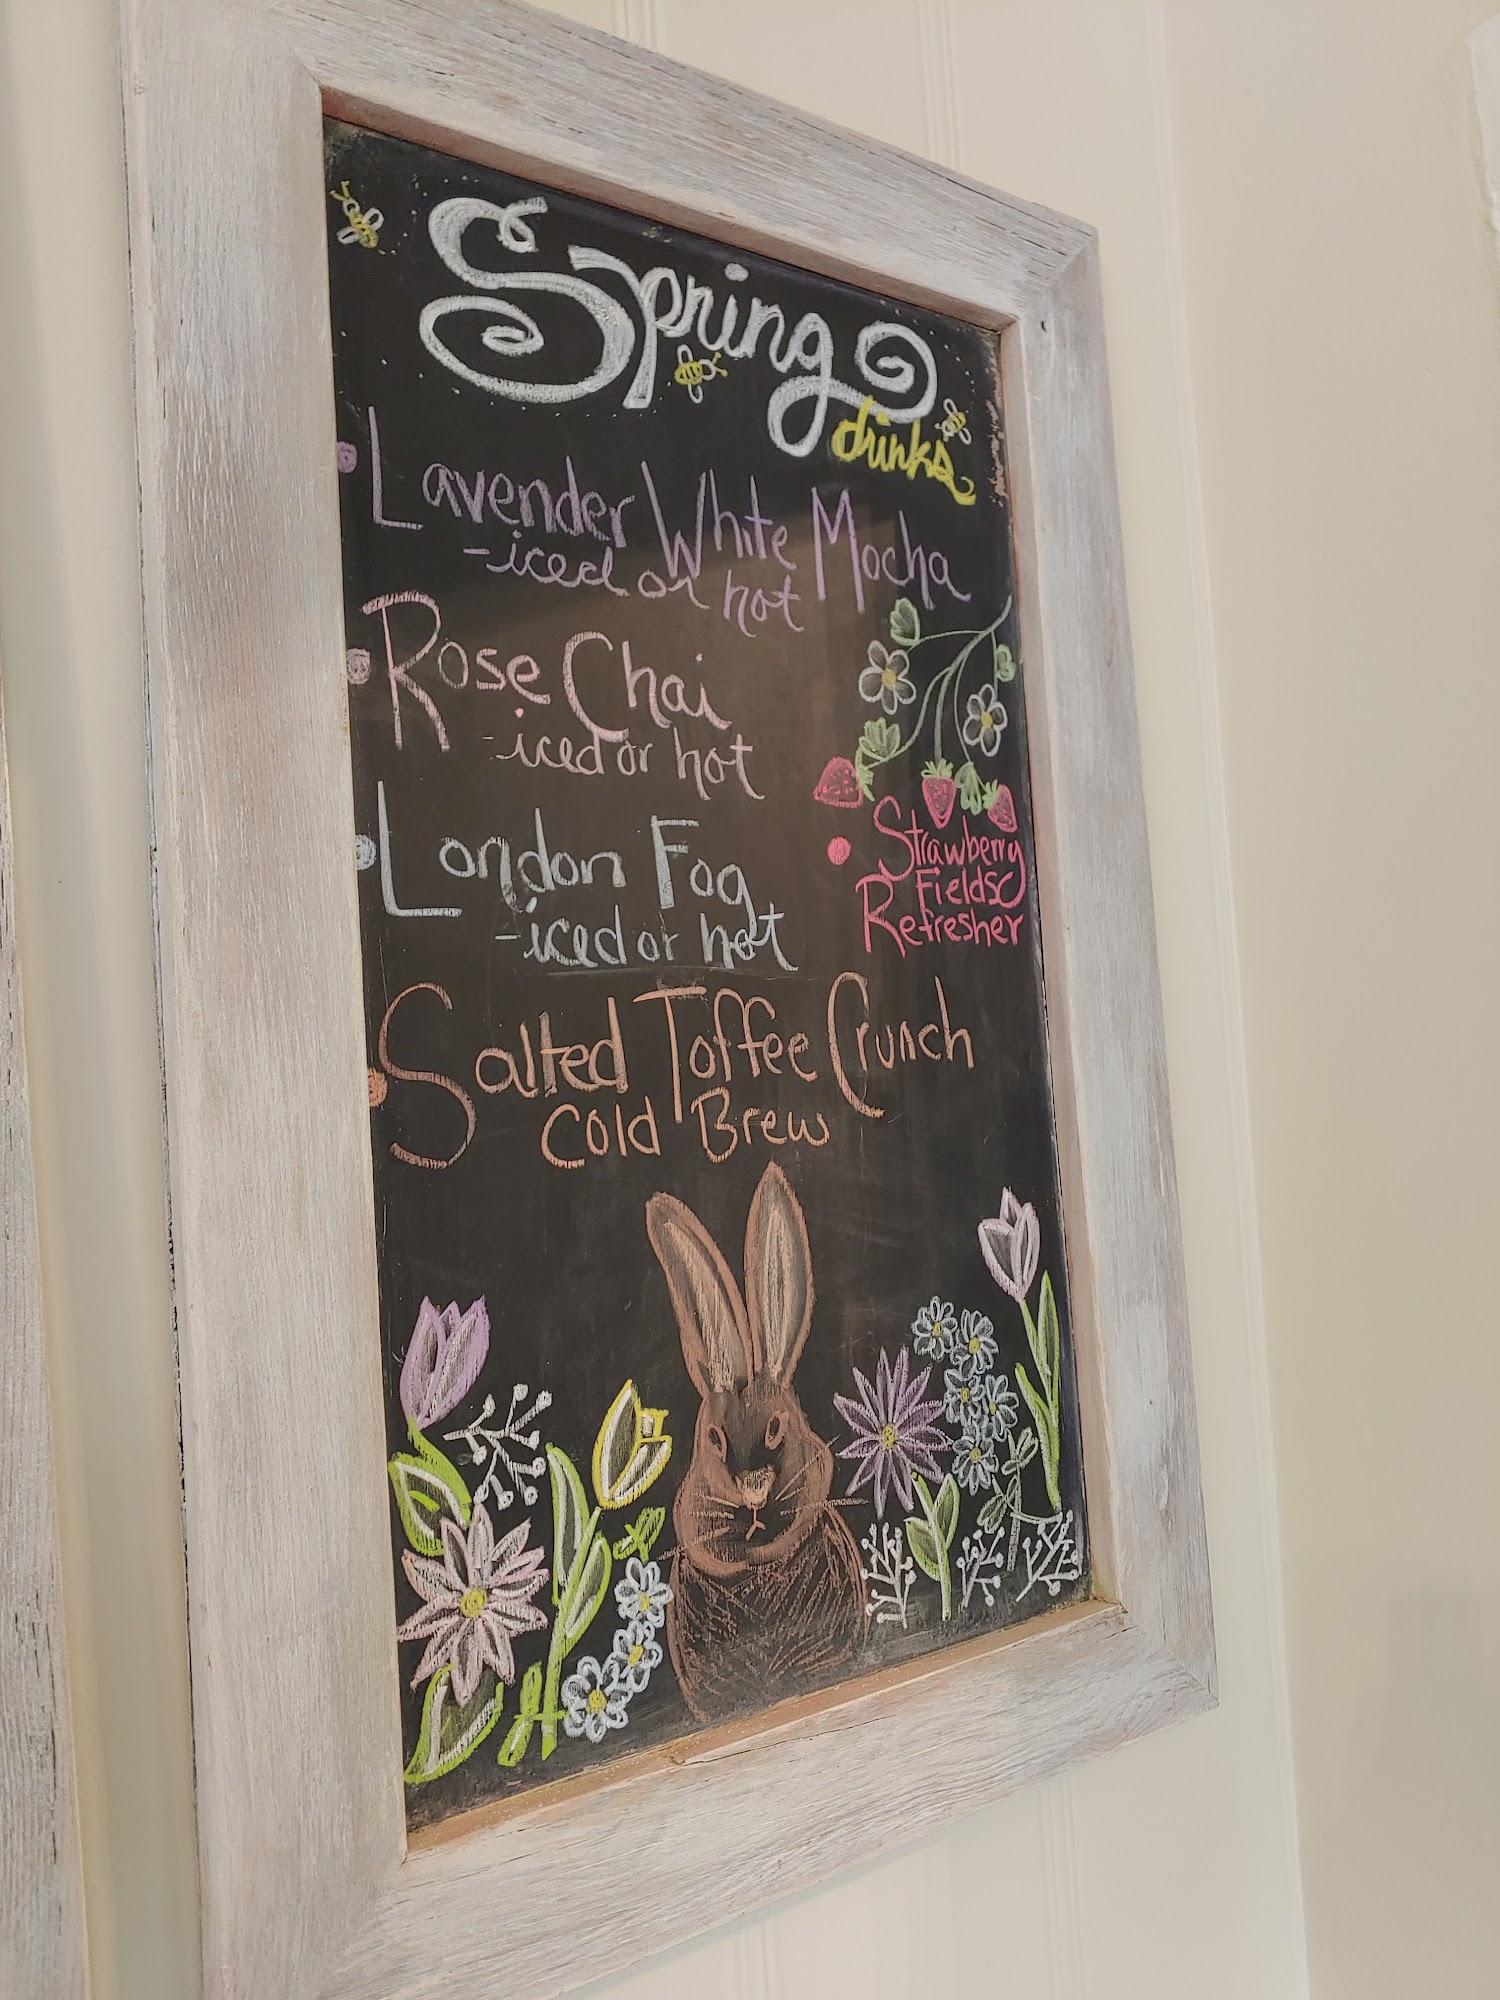 Spring
drinks
Lavender White Mocha
-iced or hot
Rose Chai
-iced or hot
London Fog
-iced or hot
Strawberry
Fields
Refresher
Salted Toffee Crunch
Cold Brew